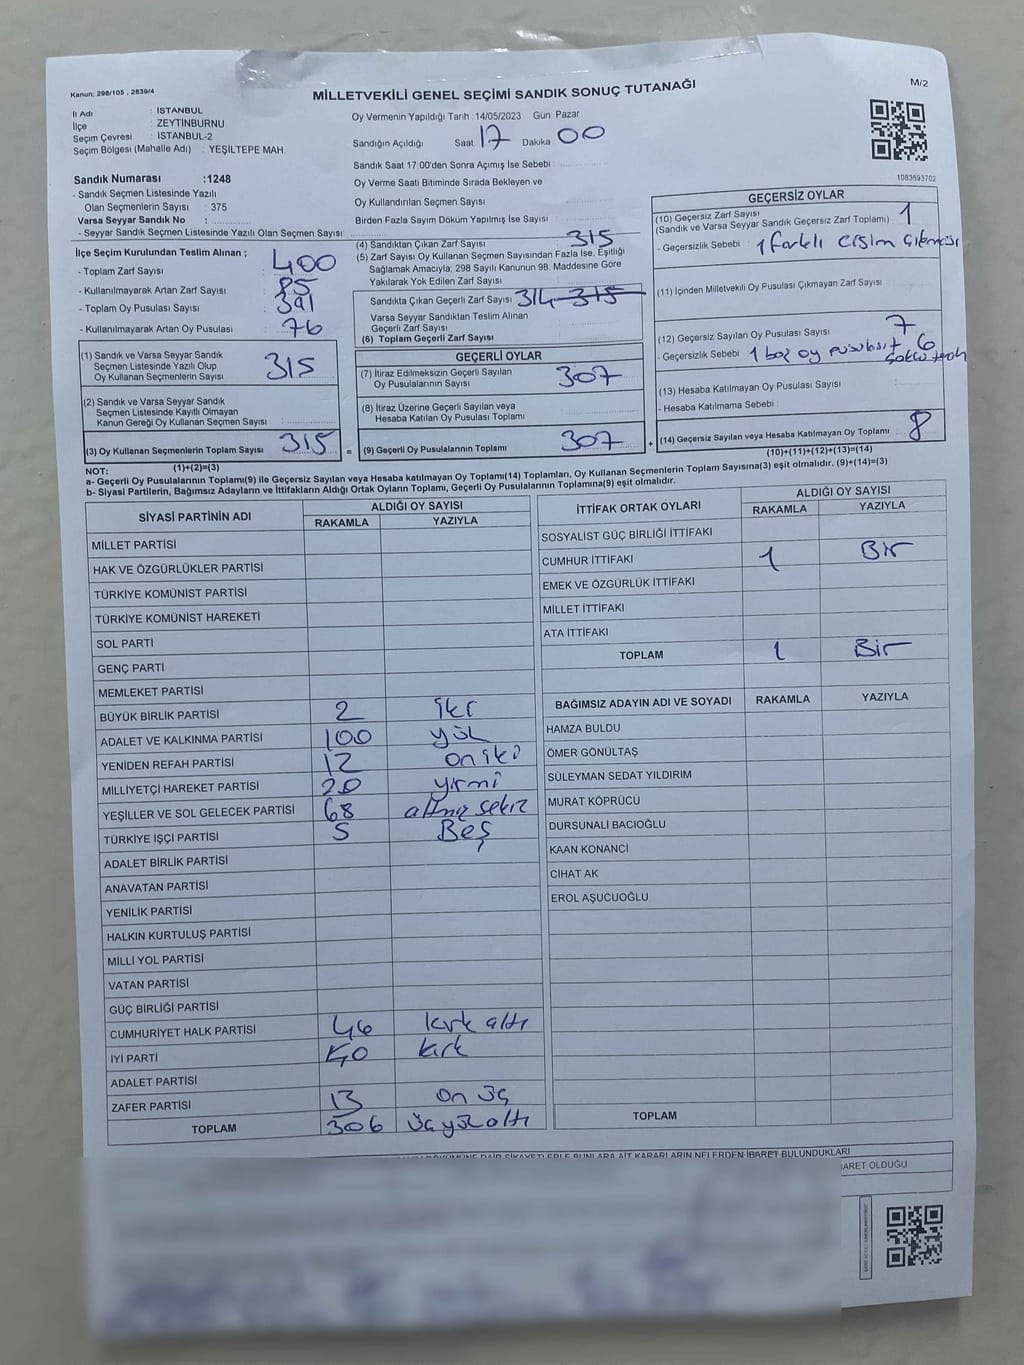 Kanun; 298/105 , 2839/4
MİLLETVEKİLİ GENEL SEÇİMİ SANDIK SONUÇ TUTANAĞI
M/2
İl Adı : İSTANBUL
İlçe : ZEYTİNBURNU
Seçim Çevresi : İSTANBUL-2
Seçim Bölgesi (Mahalle Adı) : YEŞİLTEPE MAH.
Oy Vermenin Yapıldığı Tarih : 14/05/2023 Gün: Pazar
Sandığın Açıldığı Saat 17 Dakika 00
Sandık Saat 17:00'den Sonra Açımış İse Sebebi :
Oy Verme Saati Bitiminde Sırada Bekleyen ve
Oy Kullandırılan Seçmen Sayısı
Birden Fazla Sayım Döküm Yapılmış İse Sayısı
1083593702
Sandık Numarası :1248
- Sandık Seçmen Listesinde Yazılı
Olan Seçmenlerin Sayısı : 375
Varsa Seyyar Sandık No :
- Seyyar Sandık Seçmen Listesinde Yazılı Olan Seçmen Sayısı:
İlçe Seçim Kurulundan Teslim Alınan ;
- Toplam Zarf Sayısı : 400
- Kullanılmayarak Artan Zarf Sayısı : 85
- Toplam Oy Pusulası Sayısı : 391
- Kullanılmayarak Artan Oy Pusulası : 76
(1) Sandık ve Varsa Seyyar Sandık
Seçmen Listesinde Yazılı Olup
Oy Kullanan Seçmenlerin Sayısı 315
(2) Sandık ve Varsa Seyyar Sandık
Seçmen Listesinde Kayıtlı Olmayan
Kanun Gereği Oy Kullanan Seçmen Sayısı :
(3) Oy Kullanan Seçmenlerin Toplam Sayısı 315
(1)+(2)=(3)
(4) Sandıktan Çıkan Zarf Sayısı 315
(5) Zarf Sayısı Oy Kullanan Seçmen Sayısından Fazla İse, Eşitliği
Sağlamak Amacıyla, 298 Sayılı Kanunun 98. Maddesine Göre
Yakılarak Yok Edilen Zarf Sayısı
Sandıkta Çıkan Geçerli Zarf Sayısı 314 315
Varsa Seyyar Sandıktan Teslim Alınan
Geçerli Zarf Sayısı
(6) Toplam Geçerli Zarf Sayısı
GEÇERLİ OYLAR
(7) İtiraz Edilmeksizin Geçerli Sayılan
Oy Pusulalarının Sayısı 307
(8) İtiraz Üzerine Geçerli Sayılan veya
Hesaba Katılan Oy Pusulası Toplamı
= (9) Geçerli Oy Pusulalarının Toplamı 307 +
GEÇERSİZ OYLAR
(10) Geçersiz Zarf Sayısı 1
(Sandık ve Varsa Seyyar Sandık Geçersiz Zarf Toplamı)
- Geçersizlik Sebebi : 1 farklı
(11) İçinden Milletvekili Oy Pusulası Çıkmayan Zarf Sayısı
(12) Geçersiz Sayılan Oy Pusulası Sayısı 7
- Geçersizlik Sebebi 1 boş oy pusulası 6
(13) Hesaba Katılmayan Oy Pusulası Sayısı
- Hesaba Katılmama Sebebi :
(14) Geçersiz Sayılan veya Hesaba Katılmayan Oy Toplamı 8
(10)+(11)+(12)+(13)=(14)
NOT:
a- Geçerli Oy Pusulalarının Toplamı(9) ile Geçersiz Sayılan veya Hesaba katılmayan Oy Toplamı(14) Toplamları, Oy Kullanan Seçmenlerin Toplam Sayısına(3) eşit olmalıdır. (9)+(14)=(3)
b- Siyasi Partilerin, Bağımsız Adayların ve İttifakların Aldığı Ortak Oyların Toplamı, Geçerli Oy Pusulalarının Toplamına(9) eşit olmalıdır.
SİYASİ PARTİNİN ADI ALDIĞI OY SAYISI
RAKAMLA YAZIYLA
MİLLET PARTİSİ
HAK VE ÖZGÜRLÜKLER PARTİSİ
TÜRKİYE KOMÜNİST PARTİSİ
TÜRKİYE KOMÜNİST HAREKETİ
SOL PARTİ
GENÇ PARTİ
MEMLEKET PARTİSİ
BÜYÜK BİRLİK PARTİSİ 2 iki
ADALET VE KALKINMA PARTİSİ 100 yüz
YENİDEN REFAH PARTİSİ 12 on iki
MİLLİYETÇİ HAREKET PARTİSİ 20 yirmi
YEŞİLLER VE SOL GELECEK PARTİSİ 68 altmış sekiz
TÜRKİYE İŞÇİ PARTİSİ 5 Beş
ADALET BİRLİK PARTİSİ
ANAVATAN PARTİSİ
YENİLİK PARTİSİ
HALKIN KURTULUŞ PARTİSİ
MİLLİ YOL PARTİSİ
VATAN PARTİSİ
GÜÇ BİRLİĞİ PARTİSİ
CUMHURİYET HALK PARTİSİ 46 kırk altı
İYİ PARTİ 40 kırk
ADALET PARTİSİ
ZAFER PARTİSİ 13 on üç
TOPLAM 306 üç yüz altı
İTTİFAK ORTAK OYLARI ALDIĞI OY SAYISI
RAKAMLA YAZIYLA
SOSYALİST GÜÇ BİRLİĞİ İTTİFAKI
CUMHUR İTTİFAKI 1 Bir
EMEK VE ÖZGÜRLÜK İTTİFAKI
MİLLET İTTİFAKI
ATA İTTİFAKI
TOPLAM 1 Bir
BAĞIMSIZ ADAYIN ADI VE SOYADI RAKAMLA YAZIYLA
HAMZA BULDU
ÖMER GÖNÜLTAŞ
SÜLEYMAN SEDAT YILDIRIM
MURAT KÖPRÜCÜ
DURSUNALİ BACIOĞLU
KAAN KONANCİ
CİHAT AK
EROL AŞUCUOĞLU
TOPLAM
DAİR ŞİKAYETLERLE BUNLARA AİT KARARLARIN NELERDEN İBARET BULUNDUKLARI
İBARET OLDUĞU